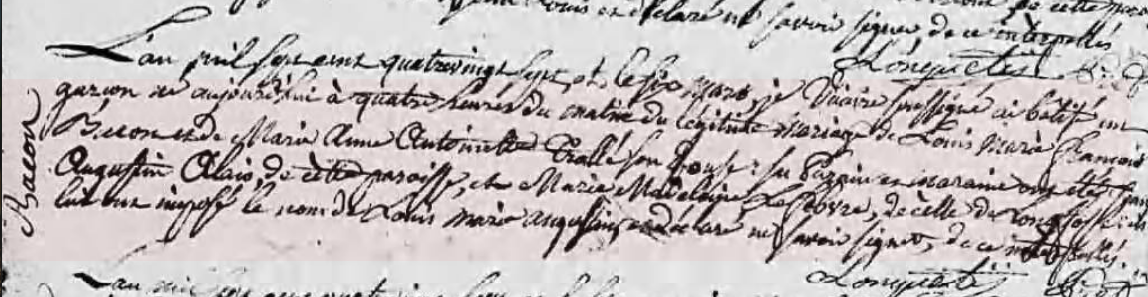 Louis et déclaré ne savoir signer de ce interpellés
Longuetis
L'an mil sept cent quatrevingt sept, et le six mars, je Vicaire soussigné ai batisé un
garçon né aujourd'hui à quatre heures du matin du légitime mariage de Louis Marie François
Bacon et de Marie Anne Antoinette Trallé son épouse: son Parrain et maraine ont été
Augustin Alais, de cette paroisse, et Marie Madeleine Lefebvre, de celle de Longfossé: ils
lui ont imposé le nom de Louis marie augustin, et déclaré ne savoir signer, de ce interpellés.
Bacon
Longuetis
L'an mil sept cent quatre vingt sept